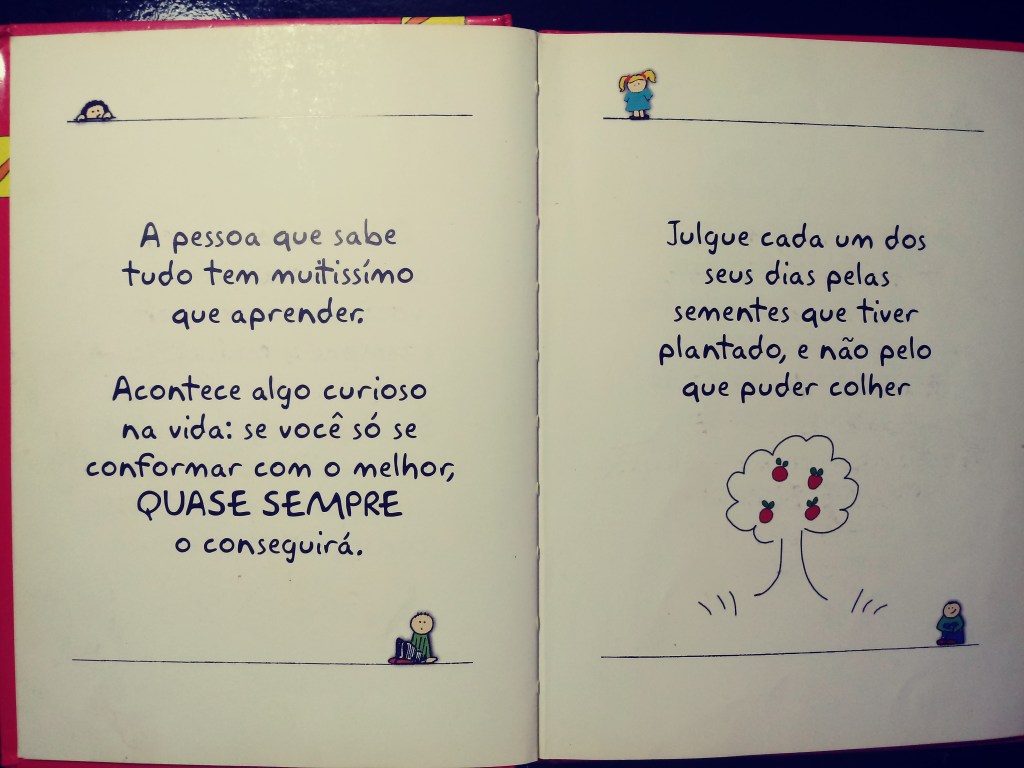 A pessoa que sabe
tudo tem muitissímo
que aprender.
Acontece algo curioso
na vida: se você só se
conformar com o melhor,
QUASE SEMPRE
o conseguirá.
Julgue cada um dos
seus dias pelas
sementes que tiver
plantado, e não pelo
que puder colher